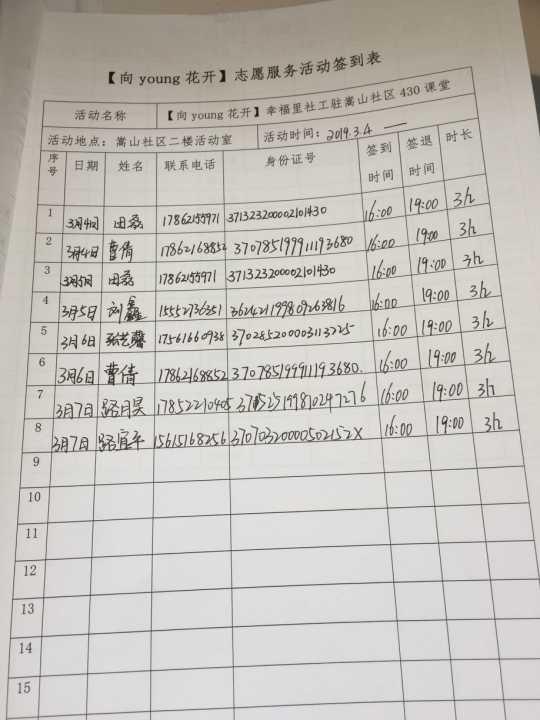 【向 young 花开】志愿服务活动签到表
活动名称 【向 young 花开】幸福里社工驻嵩山社区 430 课堂
活动地点：嵩山社区二楼活动室 活动时间：2019.3.4 —
序号 日期 姓名 联系电话 身份证号 签到时间 签退时间 时长
1 3月4日 田磊 17862155971 371323200002101430 16:00 19:00 3h
2 3月4日 曹倩 17862168852 370785199911193680 16:00 19:00 3h
3 3月5日 田磊 17862155971 371323200002101430 16:00 19:00 3h
4 3月5日 刘鑫 15552736351 362421199809268816 16:00 19:00 3h
5 3月6日 17561660938 370285200003113225 16:00 19:00 3h
6 3月6日 曹倩 17862168852 370785199911193680. 16:00 19:00 3h
7 3月7日 路月昊 17852210405 16:00 19:00 3h
8 3月7日 路宜平 15615168256 37070320000502152X 16:00 19:00 3h
9
10
11
12
13
14
15